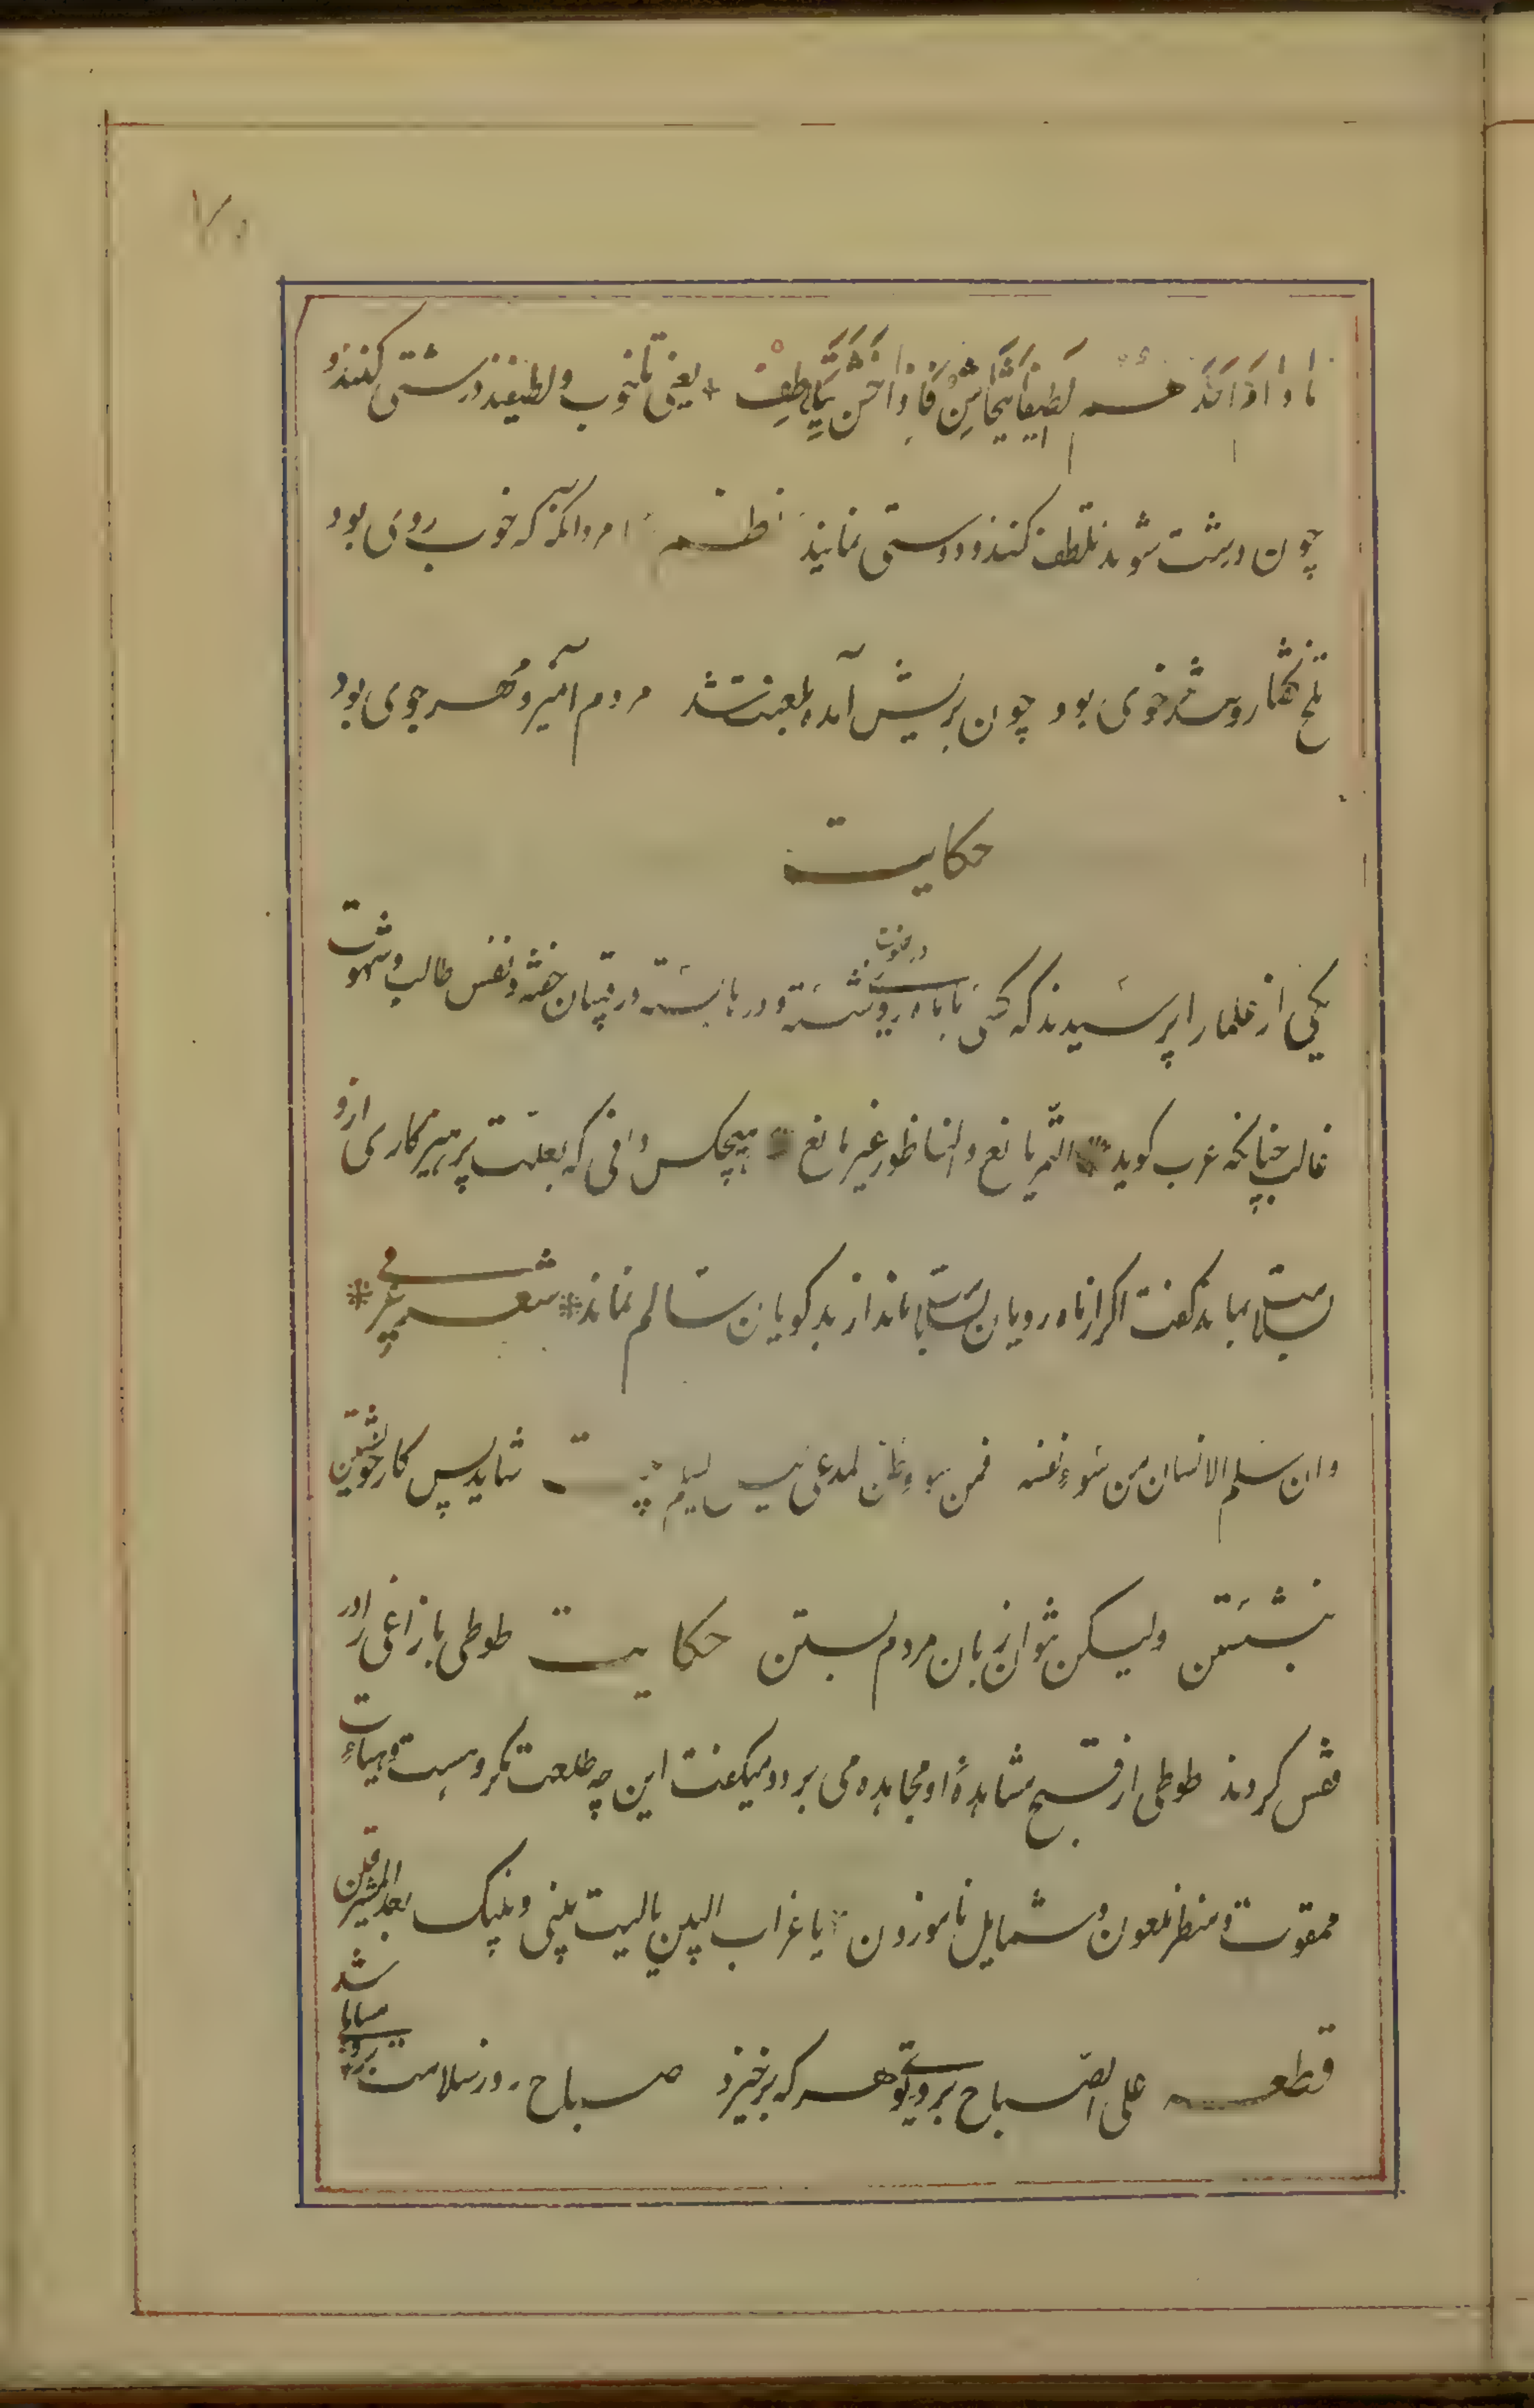 ۷۰
ما دام احد هم لَطِیفاً یَتَخاشَن فَاِذا خَشَنَ یَتَلاطف یعنی تا خوب و لطیفند درشتی کنند و
چون درشت شوند تلطف کنند و دوستی نمایند نظم امرد آنگه که خوب روی بود
تلخ گفتار و تند خوی بود چون بریش آمد و بلعنت شد مردم آمیز و مهر جوی بود
حکایت
یکی از علما را پرسیدند که کسی با ماه رویی در خلوت نشسته و درها بسته و رقیبان خفته و نفس طالب و شهوت
غالب چنانکه عرب کوید التمر یانع و الناطور غیر مانع هیچکس دانی که بعلت پرهیزکاری ازو
بسلامت بماند کفت اکر از ماه رویان بسلامت بماند از بد کویان سالم نماند شعر عربی
و ان سلم الانسان من سوء نفسه فمن سوء ظن المدعی لیس یسلم بیت شاید پس کار خویشتن
بنشستن ولیکن نتوان زبان مردم بستن حکایت طوطی با زاغی را در
قفس کردند طوطی از قبح مشاهدهٔ او مجاهده می برد و میکفت این چه طلعت مکروهست و هیاءت
ممقوت و منظر ملعون و شمایل ناموزون یا غراب البین یا لیت بینی و بینک بعد المشرقین
قطعه علی الصباح بروی تو هر که برخیزد صباح روز سلامت برو مسا باشد